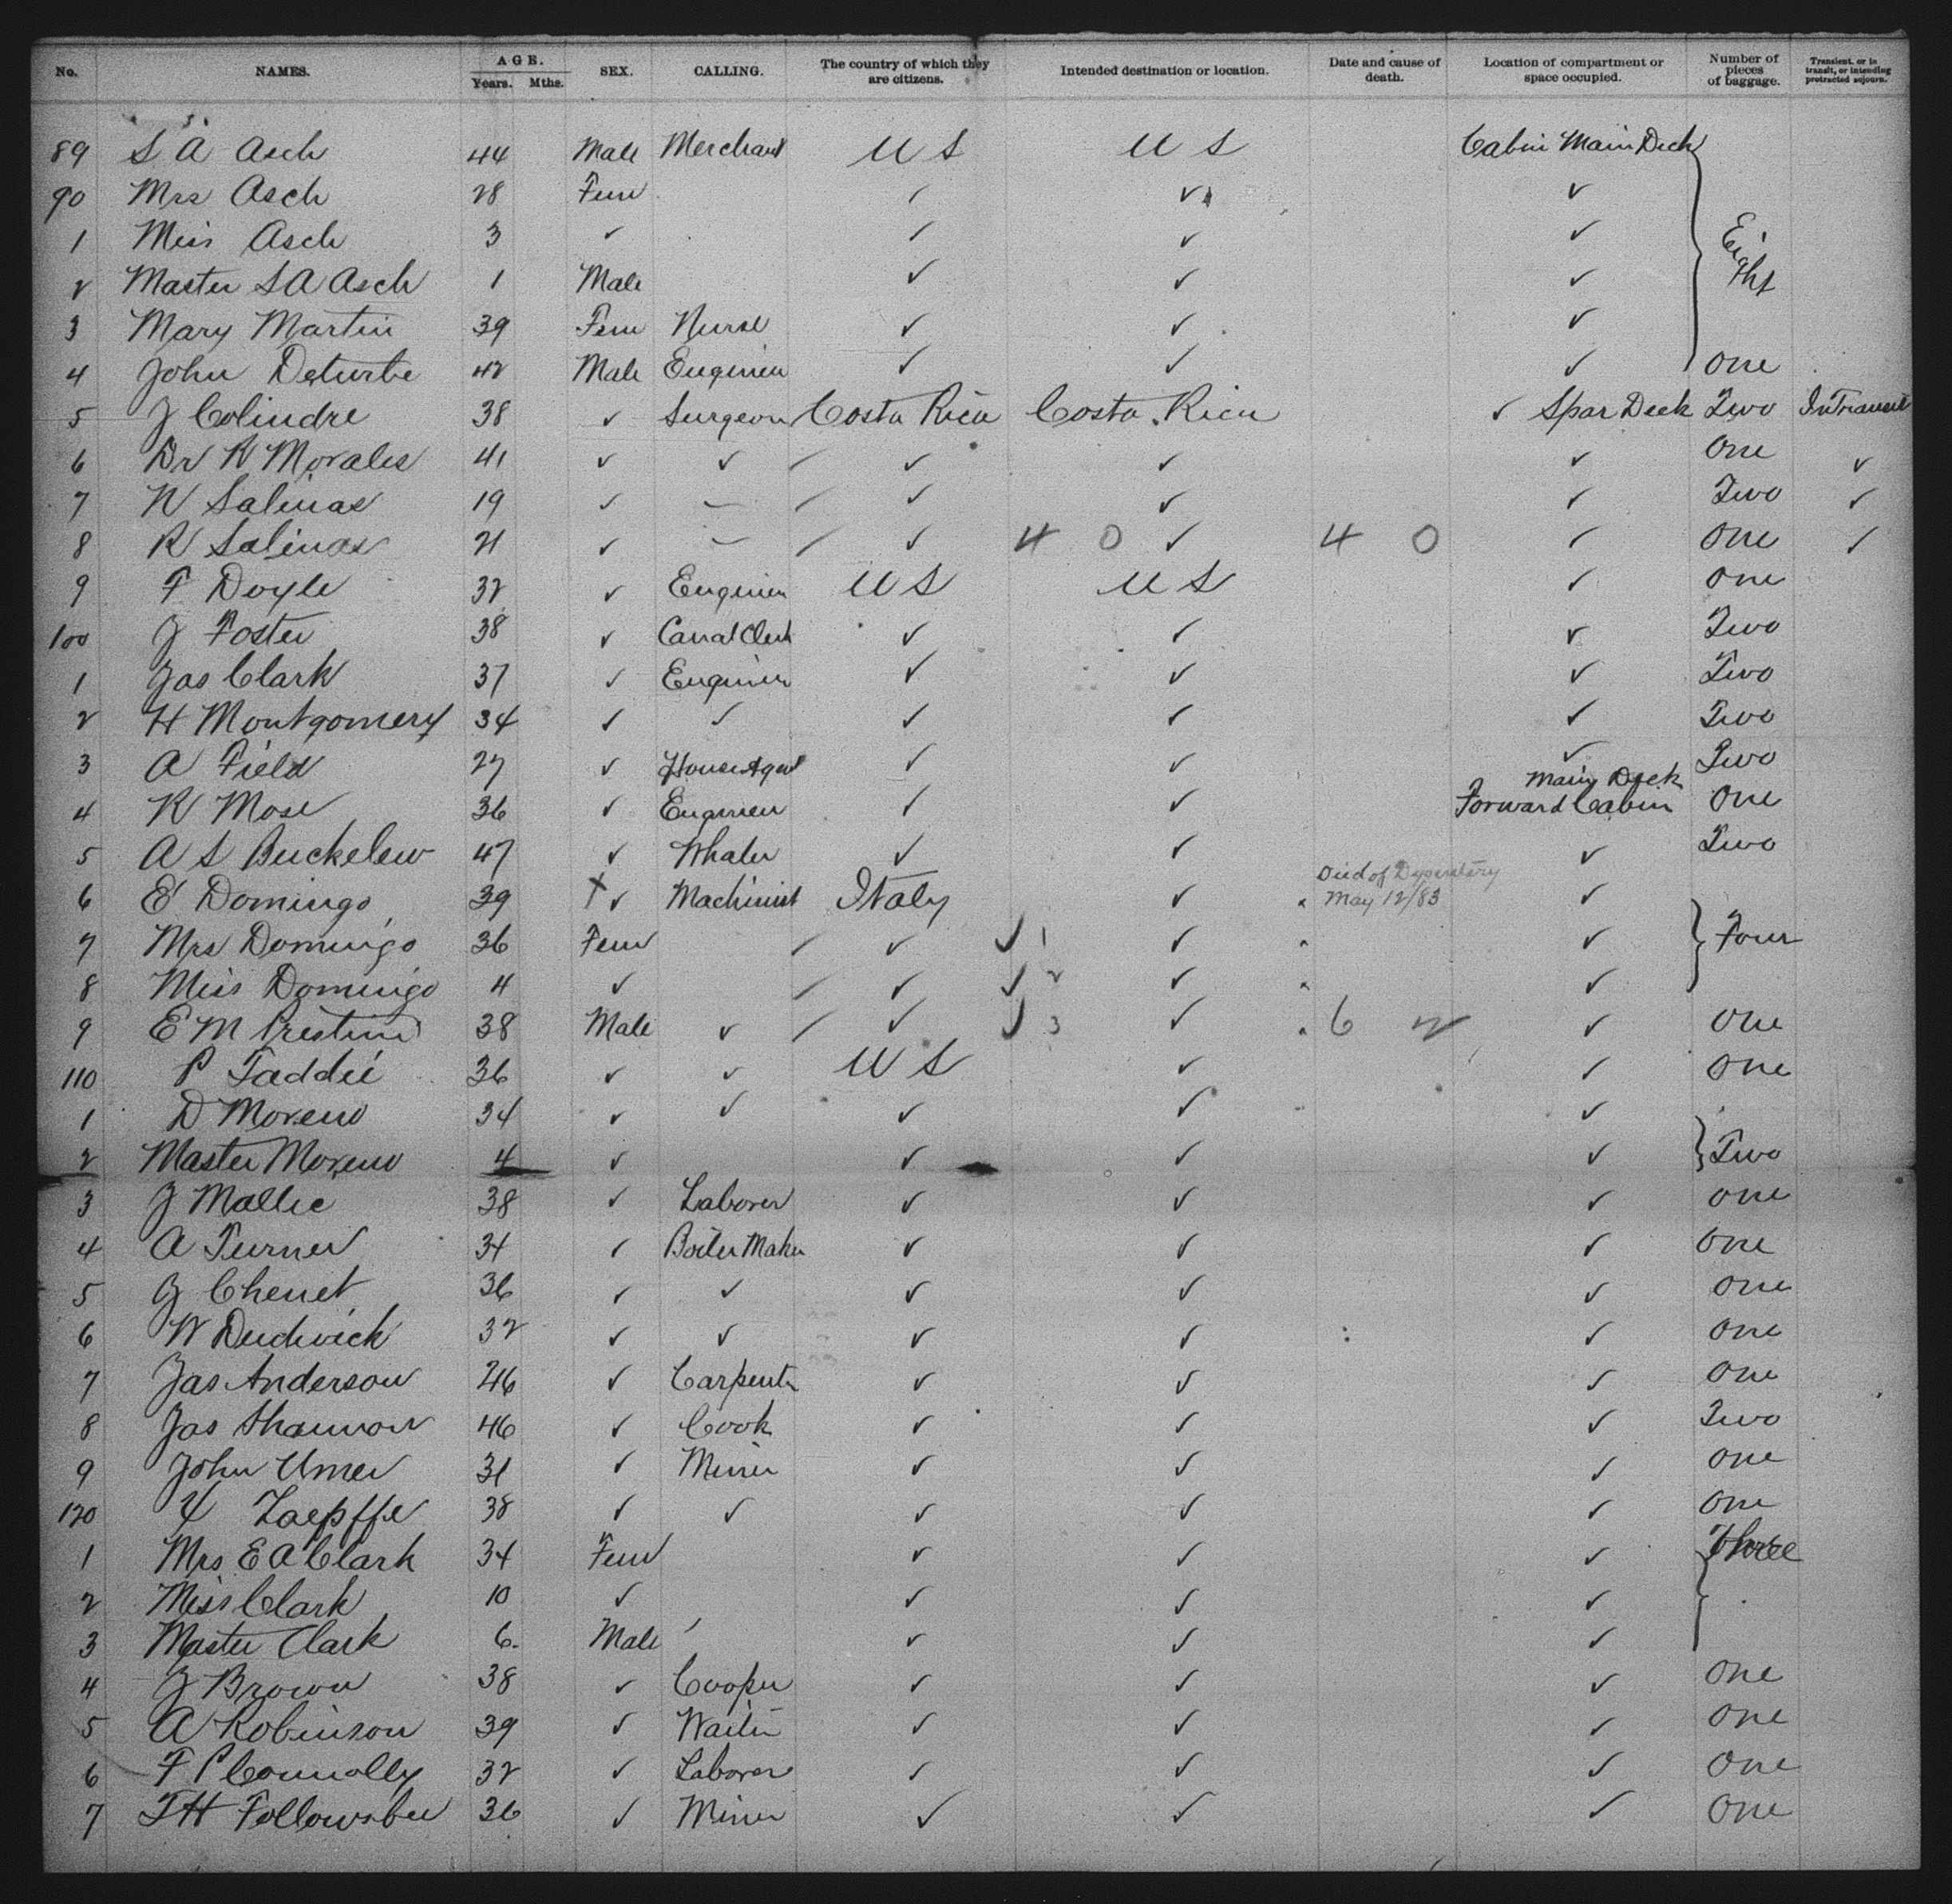 No. NAMES. AGE. Years. Mths. SEX. CALLING. The country of which they are citizens. Intended destination or location. Date and cause of death. Location of compartment or space occupied. Number of pieces of baggage. Transient, or in transit, or intending protracted sojourn.
89 S A Asch 44 Male Merchant U S U S Cabin Main Deck
90 Mrs Asch 28 Fem ✓ ✓ ✓
1 Miss Asch 3 ✓ ✓ ✓ ✓ Eight
2 Master S A Asch 1 Male ✓ ✓ ✓
3 Mary Martin 39 Fem Nurse ✓ ✓ ✓
4 John Deturbe 42 Male Engineer ✓ ✓ ✓ One
5 J Colindre 38 ✓ Surgeon Costa Rica Costa Rica ✓ Spar Deck Two In Transit
6 Dr R Morales 41 ✓ ✓ ✓ ✓ ✓ One ✓
7 N Salinas 19 ✓ — ✓ ✓ ✓ Two ✓
8 R Salinas 21 ✓ — ✓ 4 0 ✓ 4 0 ✓ One ✓
9 F Doyle 32 ✓ Engineer U S U S ✓ One
100 J Foster 38 ✓ Canal Clerk ✓ ✓ ✓ Two
1 Jas Clark 37 ✓ Engineer ✓ ✓ ✓ Two
2 H Montgomery 34 ✓ ✓ ✓ ✓ ✓ Two
3 A Field 27 ✓ House Agent ✓ ✓ ✓ Two
4 R Mose 36 ✓ Engineer ✓ ✓ Main Deck Forward Cabin One
5 A S Buckelew 47 ✓ Whaler ✓ ✓ ✓ Two
6 E Domingo 39 X ✓ Machinist Italy ✓ Died of Dysentery May 12/83 ✓
7 Mrs Domingo 36 Fem ✓ ✓ 1 ✓ ✓ Four
8 Miss Domingo 4 ✓ ✓ ✓ 2 ✓ ✓
9 E M Prestini 38 Male ✓ ✓ ✓ 3 ✓ 6 2 ✓ One
110 P Taddei 36 ✓ ✓ U S ✓ ✓ One
1 D Moreno 34 ✓ ✓ ✓ ✓ ✓
2 Master Moreno 4 ✓ ✓ ✓ ✓ Two
3 J Mallie 38 ✓ Laborer ✓ ✓ ✓ One
4 A Turner 34 ✓ Boiler Maker ✓ ✓ ✓ One
5 J Chenet 36 ✓ ✓ ✓ ✓ ✓ One
6 W 32 ✓ ✓ ✓ ✓ ✓ One
7 Jas Anderson 26 ✓ Carpenter ✓ ✓ ✓ One
8 Jas Shannon 46 ✓ Cook ✓ ✓ ✓ Two
9 John Umer 31 ✓ Miner ✓ ✓ ✓ One
120 Zaepffe 38 ✓ ✓ ✓ ✓ ✓ One
1 Mrs E A Clark 34 Fem ✓ ✓ ✓ Three
2 Miss Clark 10 ✓ ✓ ✓ ✓
3 Master Clark 6 Male ✓ ✓ ✓
4 J Brown 38 ✓ Cooper ✓ ✓ ✓ One
5 A Robinson 39 ✓ Waiter ✓ ✓ ✓ One
6 F P Connolly 32 ✓ Laborer ✓ ✓ ✓ One
7 T H Followsbee 36 ✓ Miner ✓ ✓ ✓ One